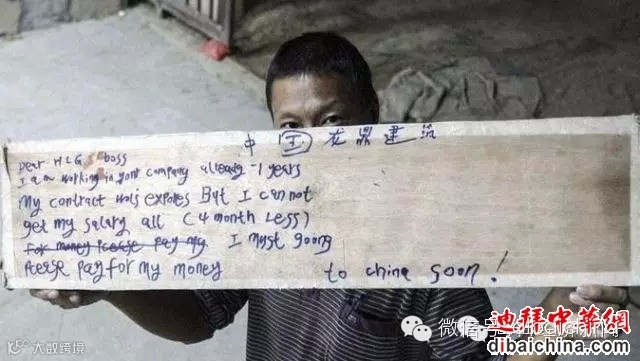 中国龙鼎建筑
Dear HLG boss
I am working in your company already -1 years
My contract was expores But I can not
get my salary all (4 month Less)
For money Pleese pay my I must going
Pleese Pay for my money to china soon!
大数跨境
微信号
迪拜中華網
dibaichina.com